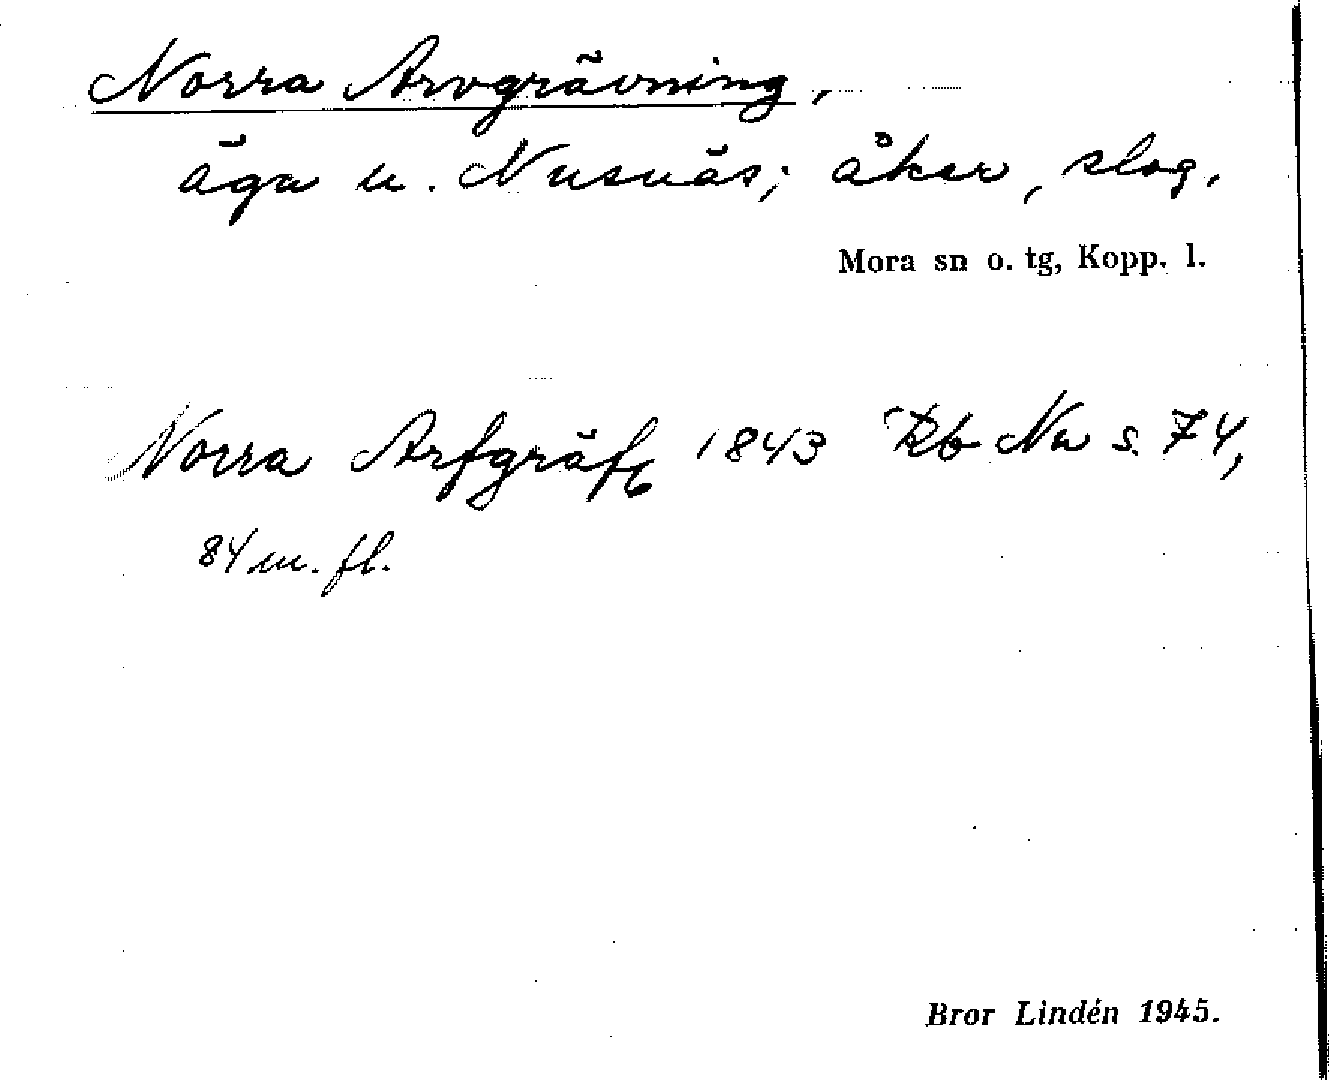 Norra Arvgrävning,
äga u. Nusnäs; åker, slog.
Mora sn o. tg, Kopp. l.
Norra Arfgräf 1843 Rb Nu s. 74,
84 m. fl.
Bror Lindén 1945.